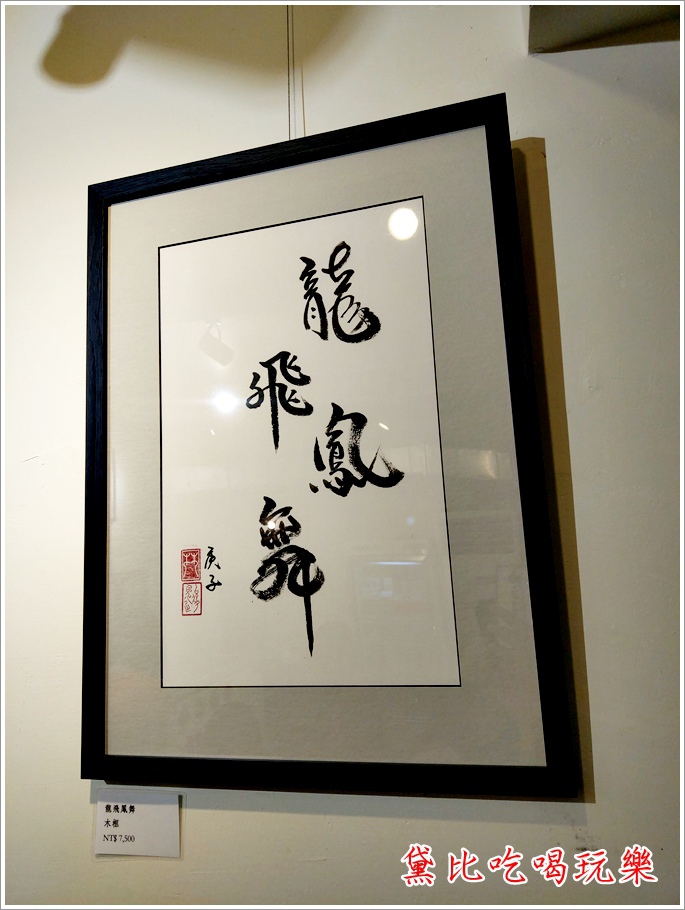 龍飛鳳舞
庚子
龍飛鳳舞
木框
NT$ 7,500
黛比吃喝玩樂